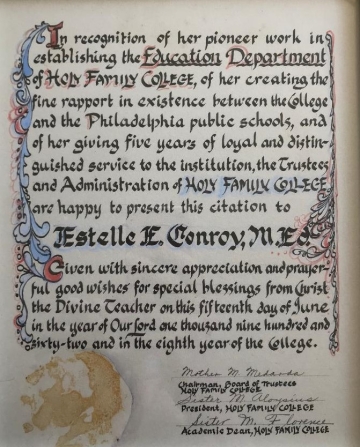 In recognition of her pioneer work in
establishing the Education Department
of HOLY FAMILY COLLEGE, of her creating the
fine rapport in existence between the College
and the Philadelphia public schools, and
of her giving five years of loyal and distin-
guished service to the institution, the Trustees
and Administration of HOLY FAMILY COLLEGE
are happy to present this citation to
Estelle E. Conroy, M.Ed.
Given with sincere appreciation and prayer-
ful good wishes for special blessings from Christ
the Divine Teacher on this fifteenth day of June
in the year of Our Lord one thousand nine hundred and
sixty-two and in the eighth year of the College.
Mother M. Medarda
Chairman, Board of Trustees
HOLY FAMILY COLLEGE
Sister M. Aloysius
President, HOLY FAMILY COLLEGE
Sister M. Florence
Academic Dean, HOLY FAMILY COLLEGE